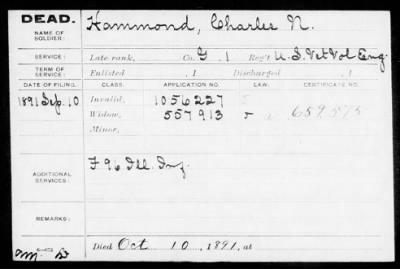 DEAD.
NAME OF SOLDIER: Hammond, Charles N.
SERVICE: Late rank, Co. G. 1 Reg't U. S. Vet Vol Eng.
TERM OF SERVICE: Enlisted , 1 Discharged , 1
DATE OF FILING. CLASS. APPLICATION NO. LAW. CERTIFICATE NO.
1891 Sep. 10 Invalid, 1056227
Widow, 557913 659,575
Minor,
ADDITIONAL SERVICES: F 96 Ill. Inf.
REMARKS:
Died Oct 10, 1891, at